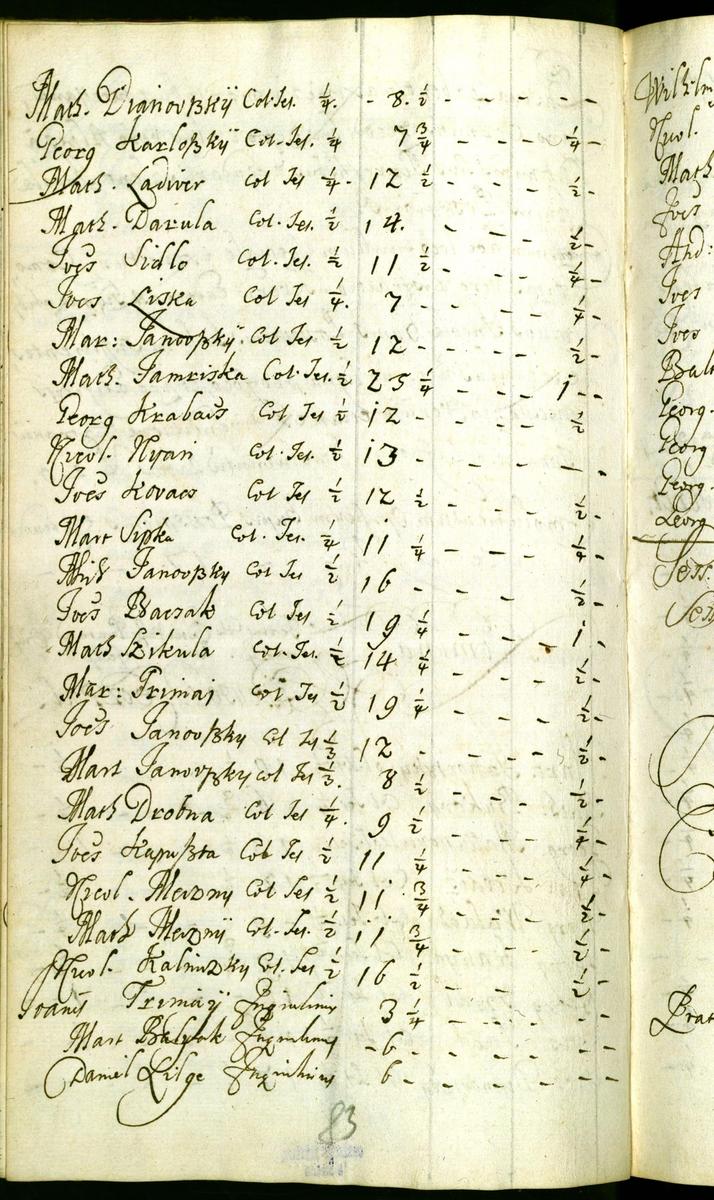 Math. Dianovßkÿ Col. Ses. 1/4. - 8. 1/2 - - - - -
Georg Karloßkÿ Col. Ses. 1/4 7 3/4 - - - 1/4 -
Math. Ladiver Col Ses 1/4 - 12 1/2 - - - 1/2 -
Math. Darula Col. Ses. 1/2 14. - - - 1/2 -
Jves Sidlo Col. Ses. 1/2 11 1/2 - - - 1/4 -
Jves Liska Col Ses 1/4. 7 - - - - 1/4 -
Mar: Janovßkÿ. Col Ses 1/2 12 - - - - 1/2 -
Math. Jamriska Col. Ses. 1/2 25 1/4 - - - 1 - -
Georg Krabacs Col Ses 1/2 12 - - - - 1/2
Nicol. Nyari Col. Ses. 1/2 13 - - - - - -
Jves Kovacs Col Ses 1/2 12 1/2 - - - 1/2 -
Mart Sipka Col. Ses. 1/4 11 1/4 - - - 1/4 -
Janovßky Col Ses 1/2 16 - - - - 1/2 -
Jves Col Ses 1/2 19 1/4 - - - 1 -
Math Szikula Col. Ses. 1/2 14 1/4 - - - 1/2 -
Mar: Trimaj Col Ses 1/2 19 1/4 - - - 1/2 -
Joes Janovßky Col Ses 1/3 12 - - - - 1/2 -
Mart Janovßky Col Ses 1/3. 8 1/2 - - - 1/2 -
Math Drobna Col Ses 1/4. 9 1/2 - - - 1/4 -
Jves Kapußta Col Ses 1/2 11 1/4 - - - 1/4 -
Nicol. Col Ses 1/2 11 3/4 - - - 1/2 -
Math Col. Ses. 1/2 11 3/4 - - - 1/2 -
Nicol. Col. Ses 1/2 16 1/2 - - - 1/2 -
Joanes Trimaÿ Inquilinus 3 1/4 - - - - -
Mart Inquilinus - 6 - - - - - -
Daniel Lilge Inquilinus 6 - - - - - -
83
Nicol.
Math
Jves
And:
Jves
Jves
Georg.
Georg
Georg.
Georg